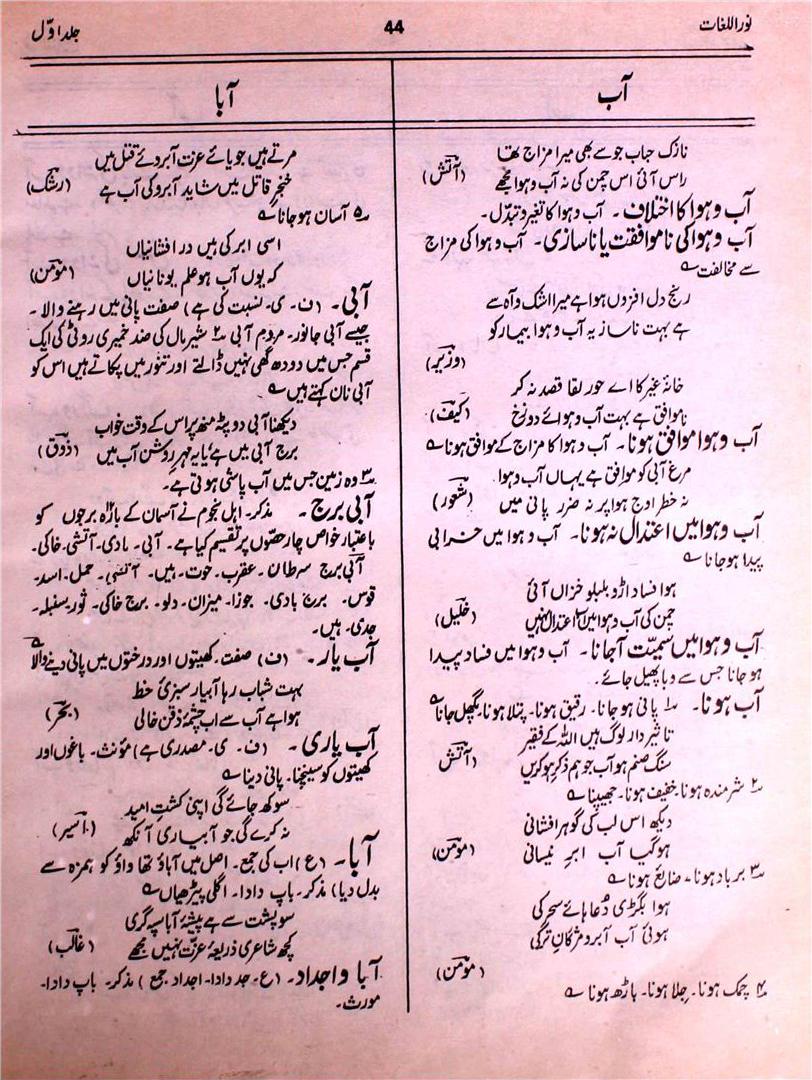 نور اللغات
44
جلد اوّل
آب
نازک حباب جو سے بھی میرا مزاج تھا
راس آئی اس چمن کی نہ آب و ہوا مجھے (آتش)
آب و ہوا کا اختلاف۔ آب و ہوا کا تغیر و تبدّل۔
آب و ہوا کی ناموافقت یا ناسازی۔ آب و ہوا کی مزاج
سے مخالفت ؎
رنج دل افزوں ہوا ہے میرا اشک و آہ سے
ہے بہت ناساز یہ آب و ہوا بیمار کو
(وزیر)
خانۂ غیر کا اے حور لقا قصد نہ کر
ناموافق ہے بہت آب و ہوائے دوزخ (کیف)
آب و ہوا موافق ہونا۔ آب و ہوا کا مزاج کے موافق ہونا ؎
مرغ آبی کو موافق ہے یہاں آب و ہوا
نہ خطر اوج ہوا پر نہ ضرر پانی میں (شعور)
آب و ہوا میں اعتدال نہ ہونا۔ آب و ہوا میں خرابی
پیدا ہو جانا ؎
ہوا فساد اڑو بلبلو خزاں آئی
چمن کی آب و ہوا میں اعتدال نہیں (خلیل)
آب و ہوا میں سمیّت آجانا۔ آب و ہوا میں فساد پیدا
ہو جانا جس سے وبا پھیل جائے۔
آب ہونا۔ ۱؎ پانی ہو جانا۔ رقیق ہونا۔ پتلا ہونا۔ پگھل جانا ؎
تاثیر دار لوگ ہیں اللہ کے فقیر
سنگ صنم ہو آب جو ہم ذکر ہو کریں (آتش)
۲؎ شرمندہ ہونا۔ خفیف ہونا۔ جھیپنا ؎
دیکھ اس لب کی گوہر افشانی
ہو گیا آب ابر نیسانی (مومن)
۳؎ برباد ہونا۔ ضایع ہونا ؎
ہوا بگڑی دُعا ہائے سحر کی
ہوئی آب آبرو مژگانِ تر کی
(مومن)
۴؎ چمک ہونا۔ جِلا ہونا۔ باڑھ ہونا ؎
آبا
مرتے ہیں جویائے عزت آبروئے قتل میں
خنجر قاتل میں شاید آبرو کی آب ہے (رشک)
۵؎ آسان ہو جانا ؎
اسی ابر کی ہیں در افشانیاں
کہ یوں آب ہو علم یونانیاں (مومن)
آبی۔ (ف۔ ی۔ نسبت کی ہے) صفت پانی میں رہنے والا۔
جیسے آبی جانور۔ مردم آبی ۲؎ شیرمال کی ضد خمیری روٹی کی ایک
قسم جس میں دودھ گھی نہیں ڈالتے اور تنور میں پکاتے ہیں اس کو
آبی نان کہتے ہیں ؎
دیکھنا آبی دوپٹہ منھ پر اس کے وقت خواب
برج آبی میں ہے یا یہ مہر روشن آب میں (ذوق)
۳؎ وہ زمین جس میں آب پاشی ہوتی ہے۔
آبی برج۔ مذکر۔ اہل نجوم نے آسمان کے بارہ برجوں کو
باعتبار خواص چار حصّوں پر تقسیم کیا ہے۔ آبی۔ بادی۔ آتشی۔ خاکی۔
آبی برج سرطان۔ عقرب۔ حوت۔ ہیں۔ آتشی۔ حمل۔ اسد۔
قوس۔ برج بادی۔ جوزا۔ میزان۔ دلو۔ برج خاکی۔ ثور۔ سنبلہ۔
جدی۔ ہیں۔
آب یار۔ (ف) صفت۔ کھیتوں اور درختوں میں پانی دینے والا ؎
بہت شباب رہا آبیار سبزئ خط
ہوا ہے آب سے اب چشمۂ ذقن خالی (بحر)
آب یاری۔ (ف۔ ی۔ مصدری ہے) مؤنث۔ باغوں اور
کھیتوں کو سینچنا۔ پانی دینا ؎
سوکھ جائے گی اپنی کشتِ امید
نہ کرے گی جو آبیاری آنکھ (اسیر)
آبا۔ (ع) اب کی جمع۔ اصل میں آباؤ تھا واؤ کو ہمزہ سے
بدل دیا) مذکر۔ باپ دادا۔ اگلی پیڑھیاں ؎
سو پشت سے ہے پیشۂ آبا سپہ گری
کچھ شاعری ذریعۂ عزّت نہیں مجھے (غالب)
آبا و اجداد۔ (ع۔ جد دادا۔ اجداد جمع) مذکر۔ باپ دادا۔
مورث۔